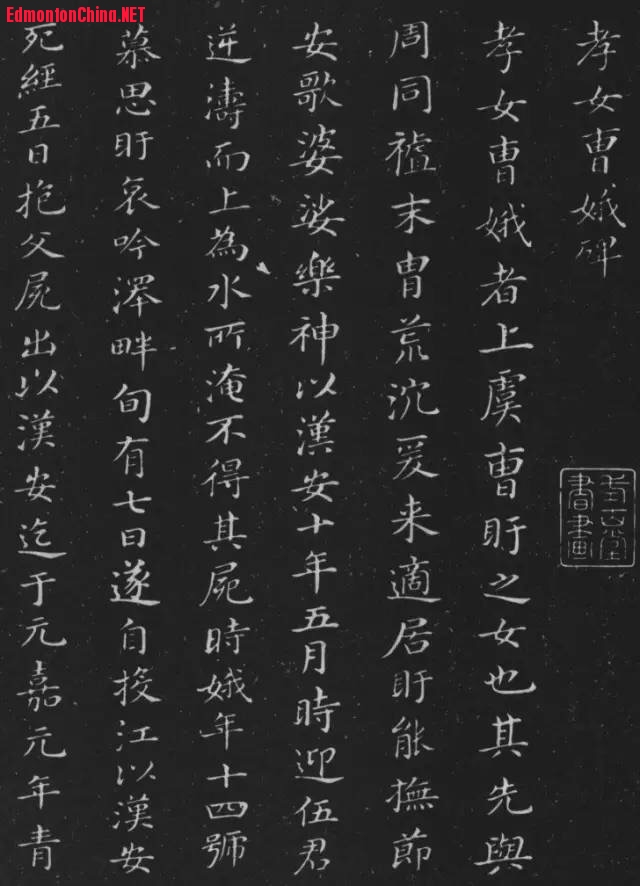 EdmontonChina.NET
孝女曹娥碑
孝女曹娥者上虞曹盱之女也其先與
周同禇末胄荒沉爰来適居盱能撫節
安歌婆娑樂神以漢安十年五月時迎伍君
逆濤而上為水所淹不得其屍時娥年十四號
慕思盱哀吟澤畔旬有七日遂自投江以漢安
死經五日抱父屍出以漢安迄于元嘉元年青
書畫